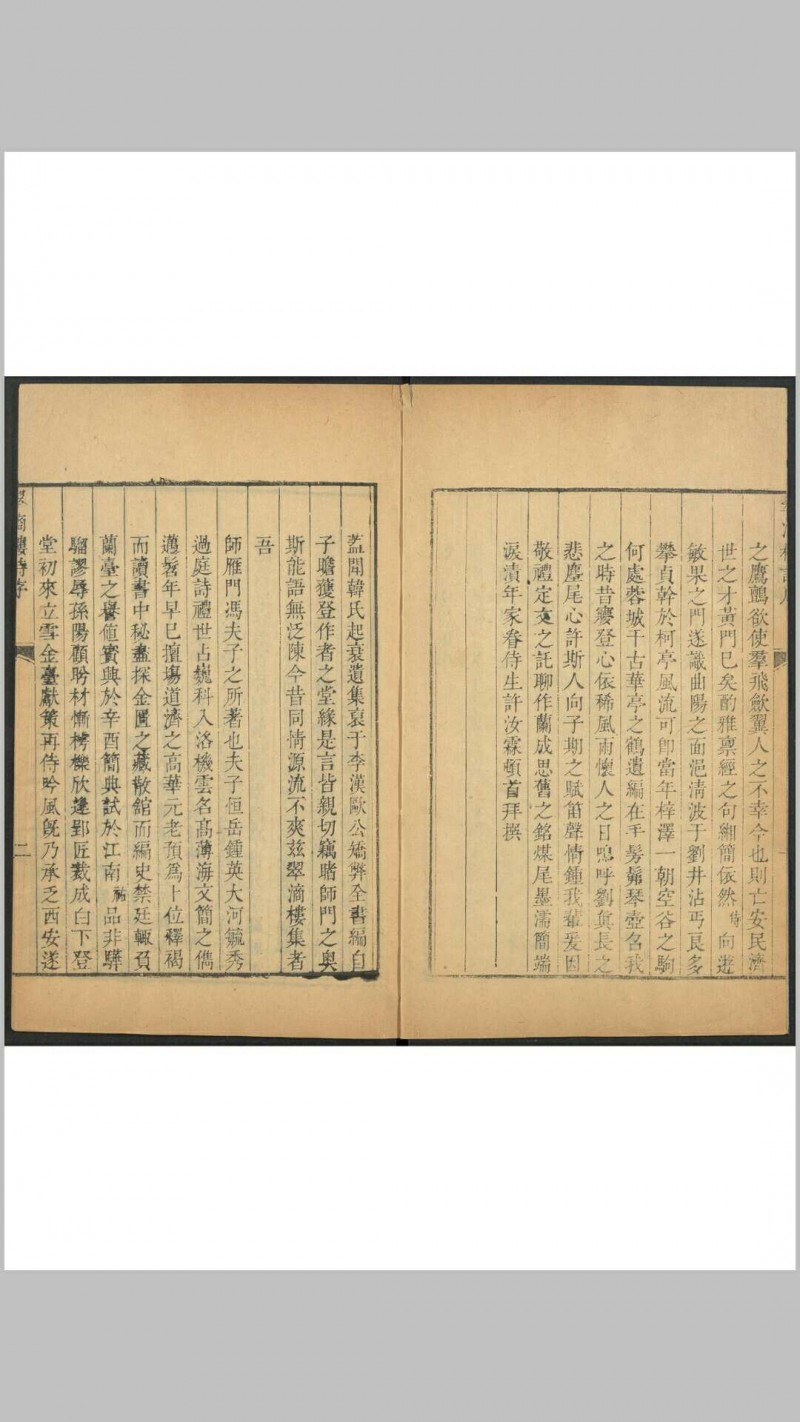 之鷹鸇欲使羣飛歛翼人之不幸今也則亡安民濟
世之才黃門已矣酌雅禀經之句緗簡依然侍向遊
敏果之門遂識曲陽之面浥清波于劉井沾丐良多
攀貞幹於柯亭風流可卽當年梓澤一朝空谷之駒
何處蓉城千古華亭之鶴遺編在手髣髴琴壺名我
之時昔寢登心依稀風雨懷人之日嗚呼劉眞長之
悲塵尾心許斯人向子期之賦笛聲情鍾我輩爰因
敬禮定文之託聊作蘭成思舊之銘煤尾墨濡簡端
淚漬年家眷侍生許汝霖頓首拜撰
蓋聞韓氏起衰遺集裒于李漢歐公矯弊全書編自
子瞻獲登作者之堂緣是言皆親切竊睹師門之奥
斯能語無泛陳今昔同情源流不爽兹翠滴樓集者
吾
師雁門馮夫子之所著也夫子恒岳鍾英大河毓秀
過庭詩禮世占巍科入洛機雲名高薄海文簡之儁
邁髫年早已擅場道濟之高華元老預爲上位釋褐
而讀書中秘盡探金匱之藏散舘而編史禁廷輙負
蘭臺之譽値賓興於辛酉簡典試於江南祐品非驊
騮謬辱孫陽顧盻材慚樗櫟欣逢郢匠裁成白下登
堂初來立雪金臺獻策再侍吟風旣乃承乏西安遂
滴樓詩序
二